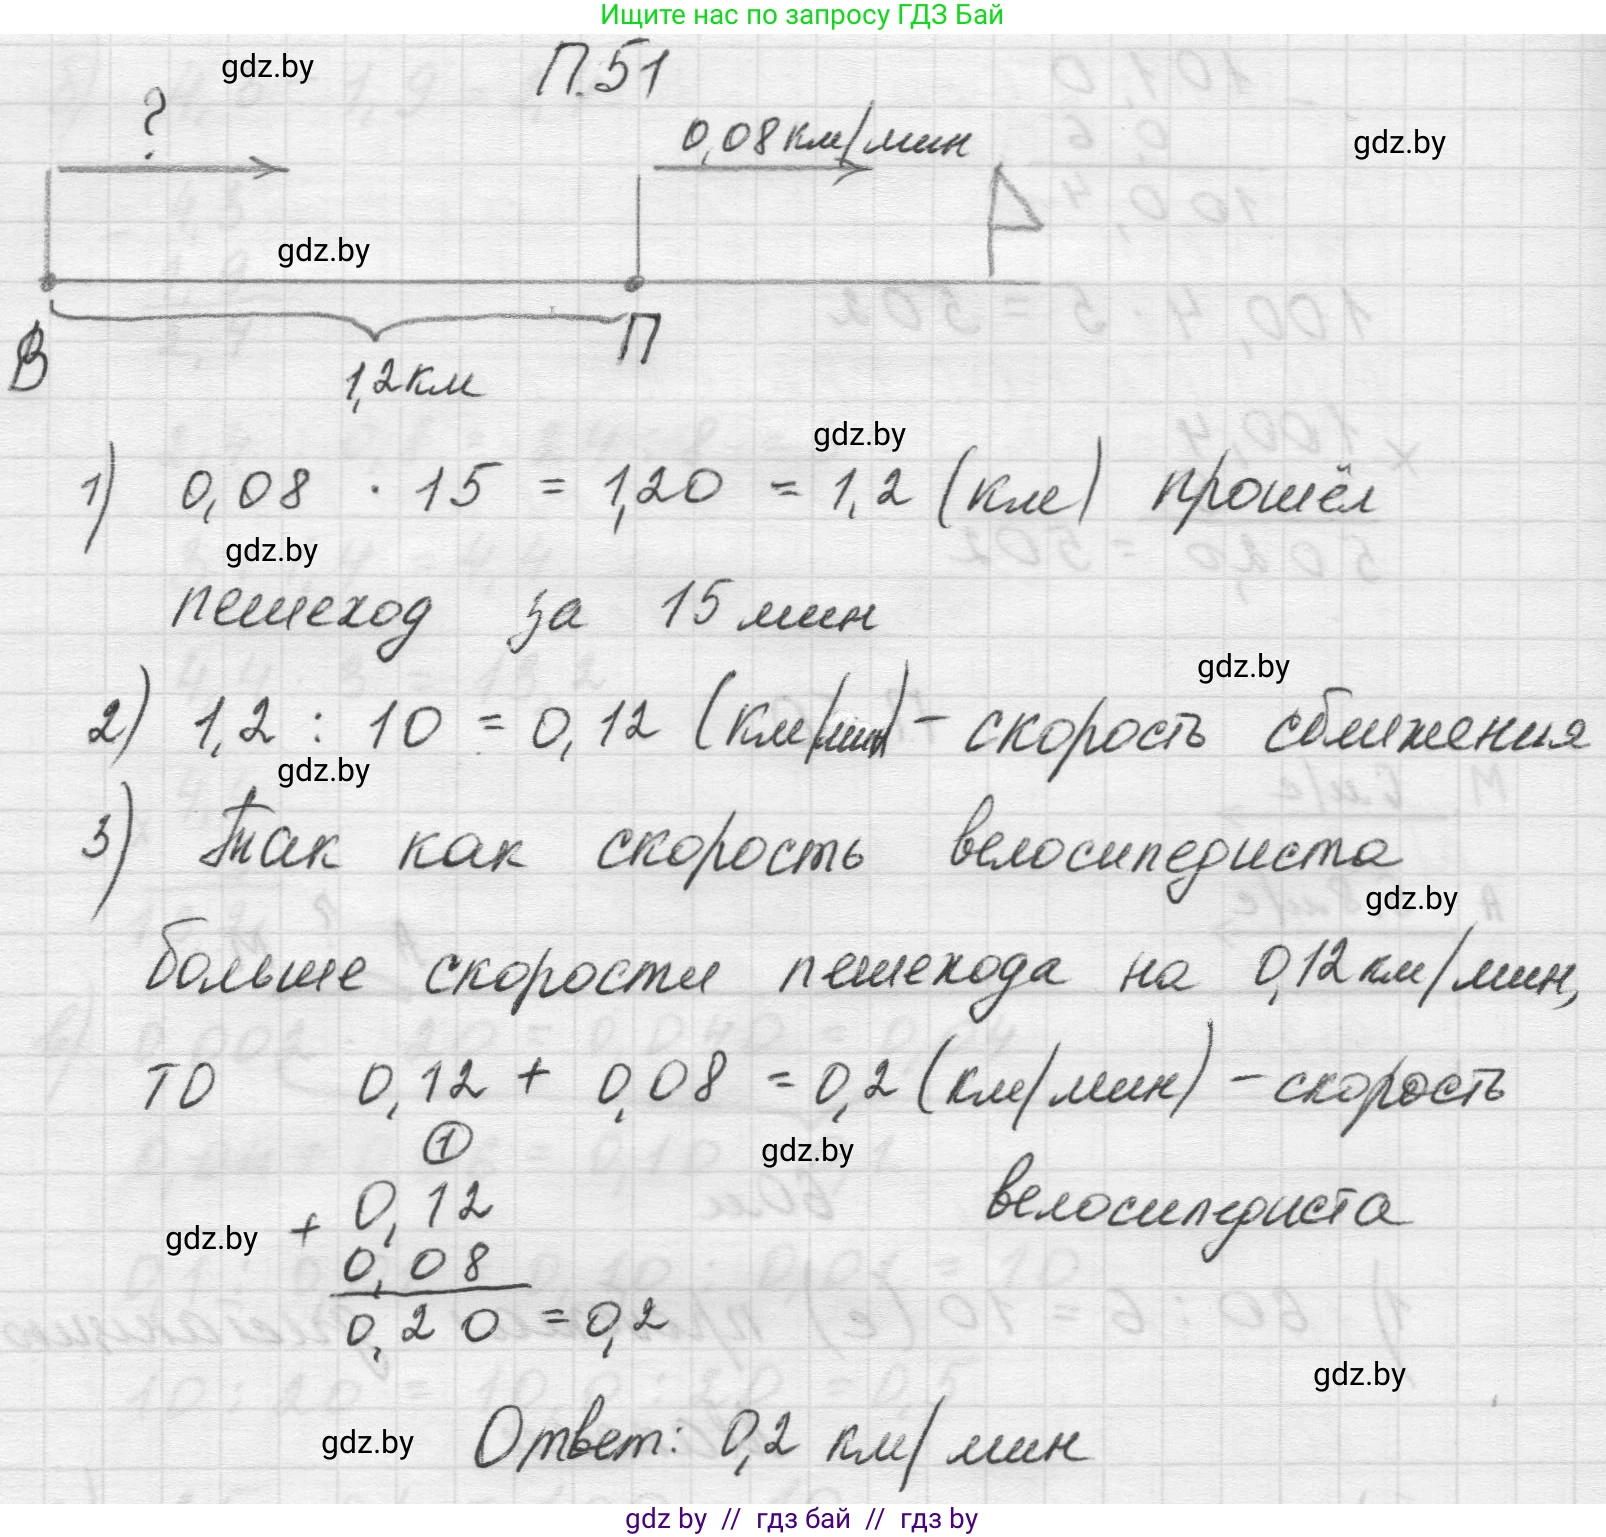 Ищите нас по запросу ГДЗ Бай
gdz.by
П.51
?
0,08 км/мин
gdz.by
gdz.by
В
П
1,2 км
gdz.by
1) 0,08 · 15 = 1,20 = 1,2 (км) прошёл
gdz.by
пешеход за 15 мин
gdz.by
2) 1,2 : 10 = 0,12 (км/мин) – скорость сближения
gdz.by
3) Так как скорость велосипедиста
gdz.by
больше скорости пешехода на 0,12 км/мин,
то 0,12 + 0,08 = 0,2 (км/мин) – скорость
1
gdz.by
велосипедиста
+ 0,12
gdz.by
0,08
0,20 = 0,2
gdz.by
gdz.by
Ответ: 0,2 км/мин
gdz by // гдз бай // гдз by